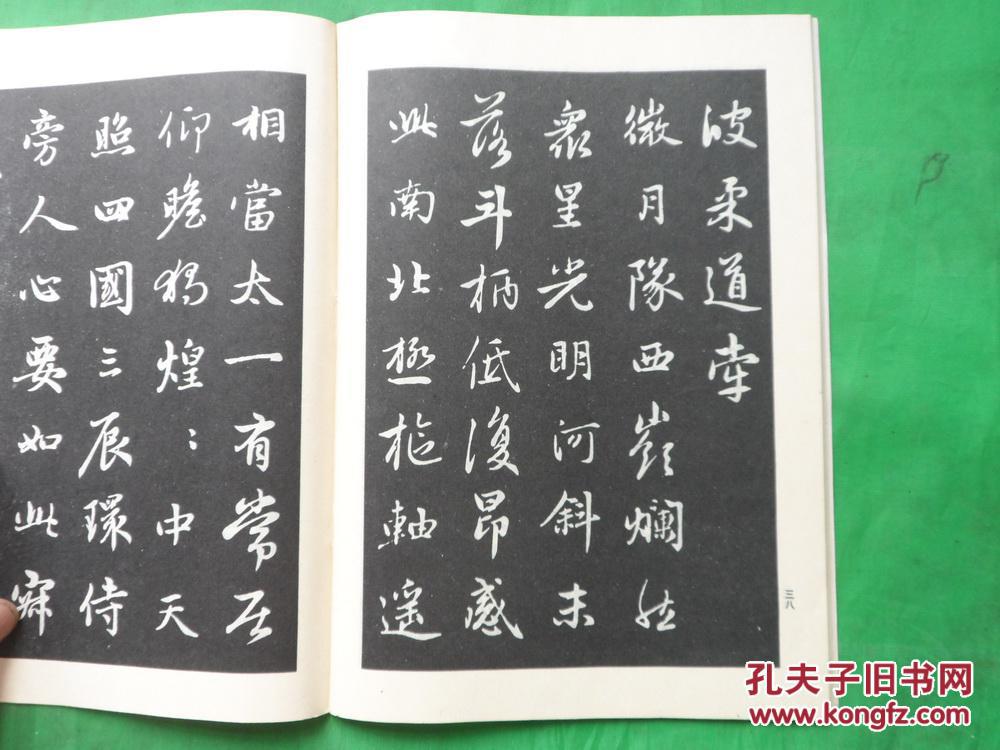 彼柔道牽
微月隊西嶺爛然
衆星光明河斜未
落斗柄低復昂感
此南北極樞軸遥
相當太一有常居
仰瞻獨煌〻中天
照四國三辰環侍
旁人心要如此寂
三八
孔夫子旧书网
www.kongfz.com